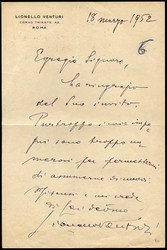 LIONELLO VENTURI
CORSO TRIESTE 42
ROMA
18 marzo 1952
6
Egregio Signore,
La ringrazio
del Suo invito.
Purtroppo i miei impe
gni sono troppo nu
merosi per permettermi
di assumerne di nuovi.
Mi scusi, e mi creda
di Lei devmo
Lionello Venturi